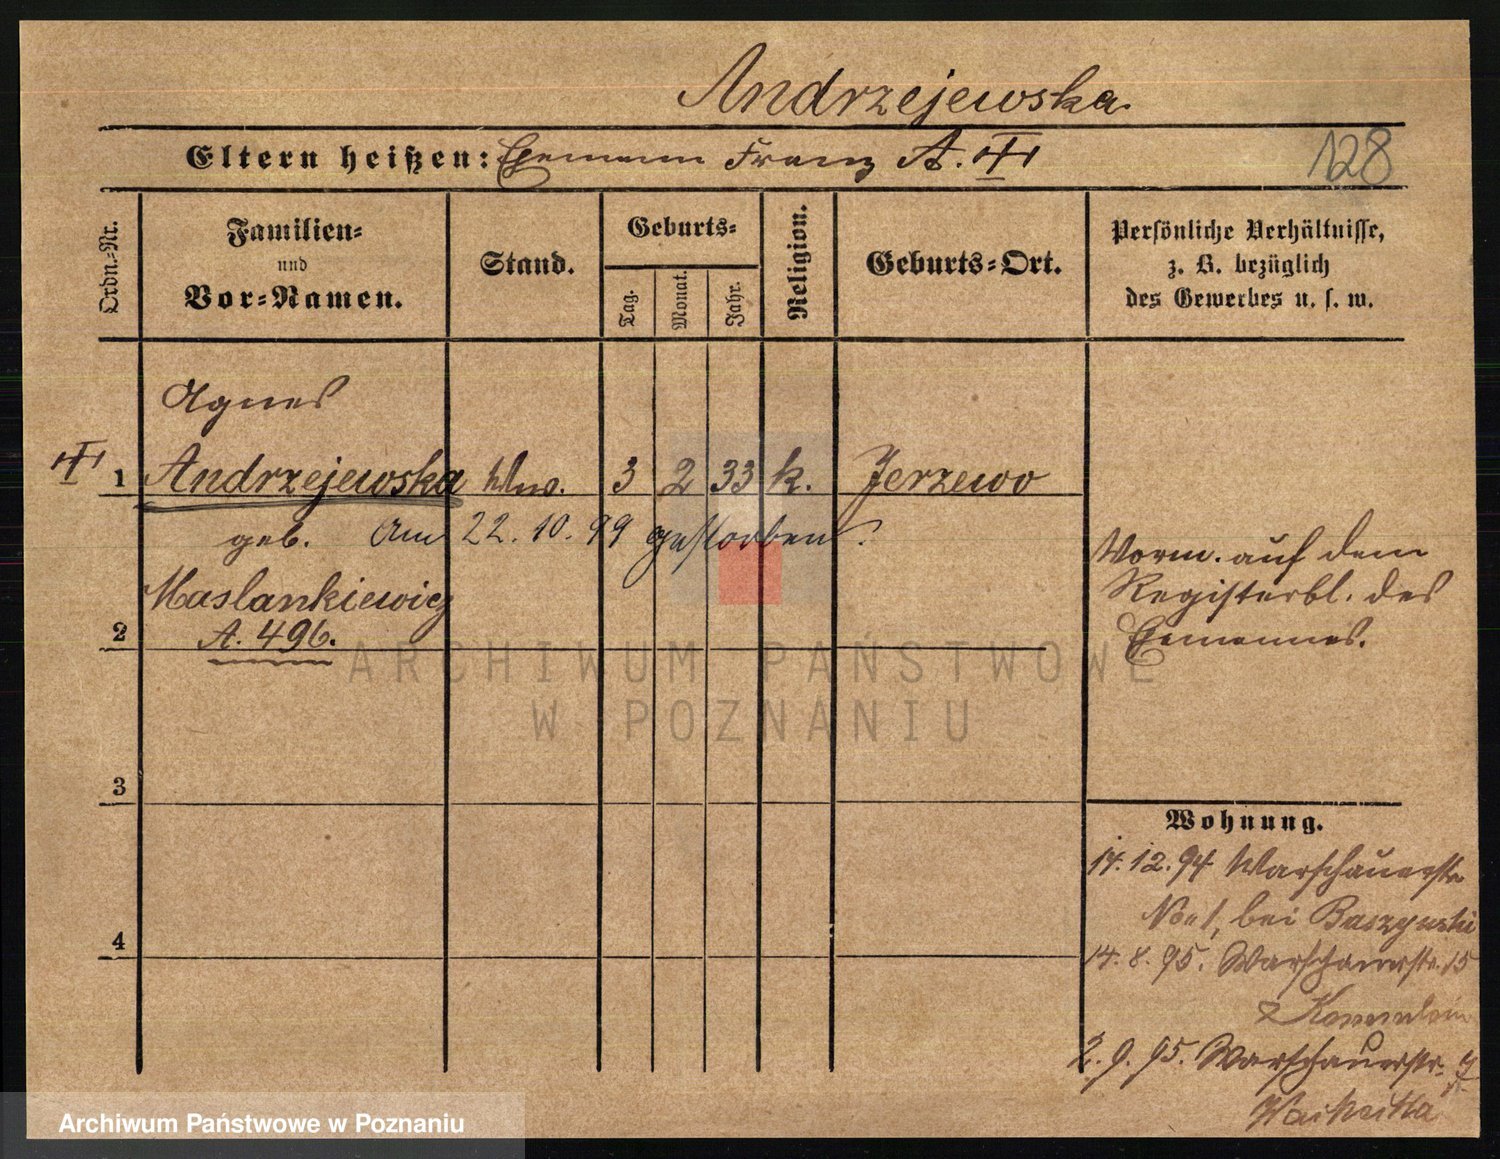 Andrzejewska.
Eltern heißen: Ehemann Franz A.
128
Ordn.-Nr.
Familien-
und
Vor-Namen.
Stand.
Geburts-
Tag.
Monat.
Jahr.
Religion.
Geburts-Ort.
Persönliche Verhältnisse,
z. B. bezüglich
des Gewerbes u. s. w.
Agnes
1 Andrzejewska Ww. 3 2 33 k. Jerzewo
geb. am 22. 10. 99 gestorben.
Maslankiewicz
2 A. 496.
Verm. auf dem
Registerbl. des
Ehemannes.
ARCHIWUM PAŃSTWOWE
W POZNANIU
3
4
Wohnung.
14. 12. 94 Warschauerstr.
No 1, bei Baszynski
14. 8. 95. Warschauerstr. 15
2. 9. 95. Warschauerstr.
Archiwum Państwowe w Poznaniu